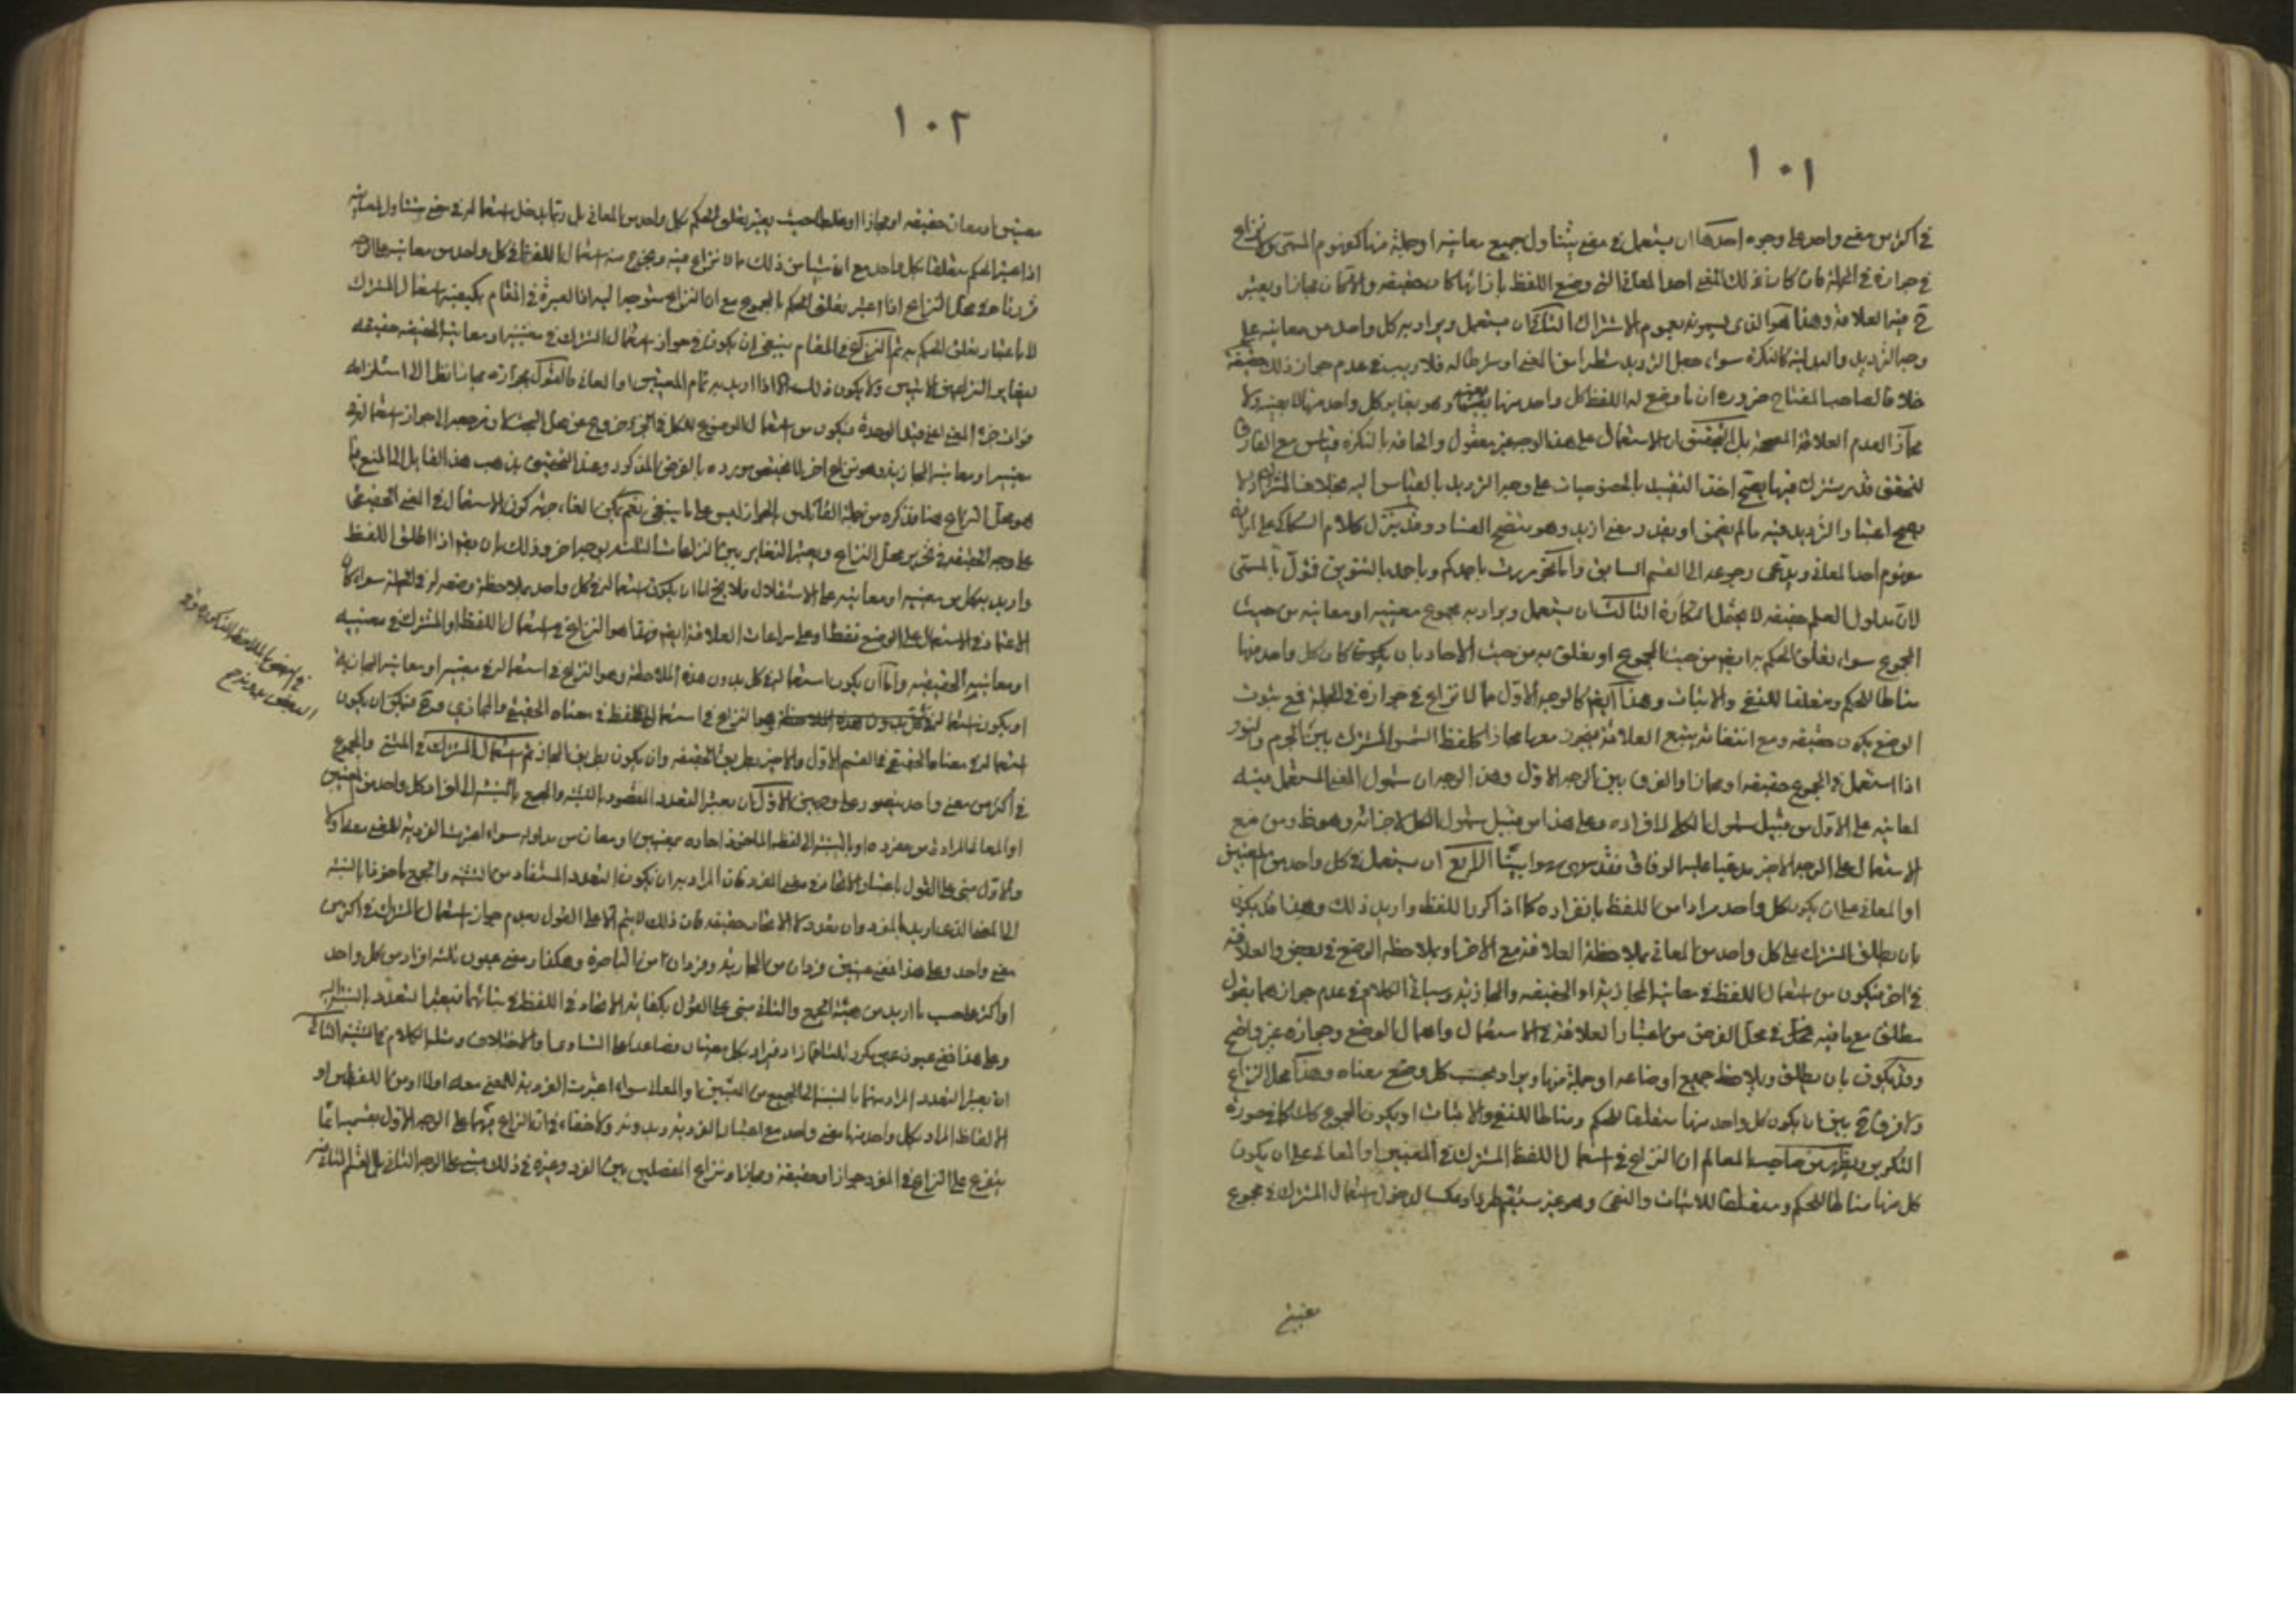 ١٠١
في اكثر من معنى واحد على وجوه احدها ان يستعمل في معنى يتناول جميع معانيه او جملة منها كمفهوم المسمى ولا نزاع
في جوازه في الجملة فان كان ذلك المعنى احد المعاني التي وضع اللفظ بازائها كان حقيقه والا كان مجازا ويعتبر
ح فيه العلاقة وهذا هو الذي يسمونه بعموم الاشتراك الثاني ان يستعمل ويراد به كل واحد من معانيه على
وجه الترديد والبدلية كالنكرة سواء جعل الترديد شطرا من المعنى او شرطا له فلا ريب في عدم جواز ذلك حقيقة
خلافا لصاحب المفتاح ضرورة ان ما وضع له اللفظ كل واحد منها بعينه وهو يغاير كل واحد منها لا بعينه ولا
مجازا لعدم العلاقة المصححة بل التحقيق ان الاستعمال على هذا الوجه غير معقول والحاقه بالنكرة قياس مع الفارق
لتحقق قدر مشترك فيها يصح اخذ التقييد بالخصوصيات على وجه الترديد بالقياس اليه بخلاف المشترك اذ لا
يصح اعتبار الترديد فيه ما لم يضمن او يقدر معنى ازيد وهو يتضح الفساد وقد ينزل كلام السكاكي على ارادة
مفهوم احد المعاني ويدعى رجوعه الى القسم السابق واما نحو مررت باحمدكم وباحمد بالتنوين فئول بالمسمى
لان مدلول العلم حقيقه لا يحتمل النكارة الثالث ان يستعمل ويراد به مجموع معنييه او معانيه من حيث
المجموع سواء تعلق الحكم به ايضا من حيث المجموع او تعلق به من حيث الاحاد بان يكون كان كل واحد منها
مناطا للحكم ومتعلقا للنفي والاثبات وهذا ايضا كالوجه الاول مما لا نزاع في جوازه في الجملة فمع ثبوت
الوضع يكون حقيقه ومع انتفائه يتبع العلاقة فيجوز معها مجازا كلفظ الشمس المشترك بين الجرم والنور
اذا استعمل في المجموع حقيقه او مجازا والفرق بين الوجه الاول وهذا الوجه ان شمول المعنى المستعمل فيه
لمعانيه على الاول من قبيل شمول الكلي لافراده وعلى هذا من قبيل شمول الكل لاجزائه وهو ظ ومن منع
الاستعمال على الوجه الاخير مدعيا عليه الوفاق فقد سهى سهوا بينا الرابع ان يستعمل في كل واحد من المعنيين
او المعاني على ان يكون كل واحد مرادا من اللفظ بانفراده كما اذا كرر اللفظ واريد ذلك وهذا قد يكون
بان يطلق المشترك على كل واحد من المعاني بملاحظة العلاقة مع الاخر او بملاحظه الوضع في بعض والعلاقة
في اخر فيكون من استعمال اللفظ في معانيه المجازية او الحقيقيه والمجازية وسياتي الكلام في عدم جوازهما بقول
مطلق مع ما فيه في محل الفرض من اعتبار العلاقة في الاستعمال واهمال الوضع وجوازه غير واضح
وقد يكون بان يطلق ويلاحظ جميع اوضاعه او جملة منها ويراد بحسب كل وضع معناه وهذا محل النزاع
ولا فرق ح بين ان يكون كل واحد منها متعلقا للحكم ومناطا للنفي والاثبات او يكون المجموع كذلك كما في صورة
التكرير ويظهر من صاحب المعالم ان النزاع في استعمال اللفظ المشترك في المعنيين او المعاني على ان يكون
كل منها مناطا للحكم ومتعلقا للاثبات والنفي وهو غير مستقيم طردا وعكسا لدخول استعمال المشترك في مجموع
معنيين
١٠٢
معنيين او معان حقيقه او مجازا او غلطا حيث يعتبر تعلق الحكم بكل واحد من المعاني بل ربما يدخل استعماله في معنى يتناول المعاني
اذا اعتبر الحكم متعلقا بكل واحد مع ان شيئا من ذلك مما لا نزاع فيه ويخرج منه استعمال اللفظ في كل واحد من معانيه على الوجه
قررناه في محل النزاع اذا اعتبر تعلق الحكم بالمجموع مع ان النزاع متوجه اليه اذ العبرة في المقام بكيفية استعمال المشترك
لا باعتبار تعلق الحكم به ثم النزاع في المقام ينبغي ان يكون في جواز استعمال المشترك في معنييه او معانيه الحقيقيه حقيقه
ليغاير النزاعين الاتيين ولا يكون ذلك الا اذا اريد به تمام المعنيين او المعاني فالقول بجوازه مجازا نظرا الى استلزامه
فوات جزء المعنى اعني قيد الوحدة فيكون من استعمال الموضوع للكل في الجزء خروج عن محل البحث اذ مرجعه الى جواز استعماله في
معنييه او معانيه المجازية وهو نزاع اخر لا يختص مورده بالفرض المذكور وعند التحقيق يذهب هذا القايل الى المنع فيما
هو محل النزاع هنا فذكره من جملة القائلين بالجواز ليس على ما ينبغي نعم يمكن الغاء جهة كون الاستعمال في المعنى الحقيقي
على وجه الحقيقه في تحرير محل النزاع ويعتبر التغاير بين النزاعات الثلثه بوجه اخر وذلك بان يقم اذا اطلق اللفظ
واريد به كل من معنييه او معانيه على الاستقلال فلا يخ اما ان يكون استعماله في كل واحد بملاحظة وضعه له في الجملة سواء كان
الاعتماد في الاستعمال على الوضع فقط او على مراعات العلاقة ايضا فهذا هو النزاع في استعمال اللفظ المشترك في معنييه
او معانيه الحقيقيه واما ان يكون استعماله في كل بدون هذه الملاحظة وهو النزاع في استعماله في معنييه او معانيه المجازية
او يكون استعماله في كل بدون هذه الملاحظة وهو النزاع في استعمال اللفظ في معناه الحقيقي والمجازي فح فيمكن ان يكون
في البعض بالملاحظة المذكورة وفي
البعض بدونه ح
استعماله في معناه الحقيقي في القسم الاول والاخير بطريق الحقيقه وان يكون بطريق المجاز ثم استعمال المشترك في المثنى والمجموع
في اكثر من معنى واحد يتصور على وجهين الاول ان يعتبر التعدد المقصود بالتثنيه والجمع بالنسبه الى افراد كل واحد من المعنيين
او المعاني المرادة من مفرده او بالنسبة الى لفظه الماخوذ احاده بمعنيين او معان من مدلوله سواء اعتبرت الفردية للمعنى معه او لا
والاول مبنى على القول باعتبار الاتحاد في معنى المفرد فان المراد به ان يكون التعدد المستفاد من التثنيه والجمع ماخوذا بالنسبه
الى المعنى الذي اريد بالمفرد وان تعدد لا الاتحاد حقيقه فان ذلك لا يتم الا على القول بعدم جواز استعمال المشترك في اكثر من
معنى واحد وعلى هذا فمعنى عينين فردان من الجارية وفردان من الباصرة وهكذا ومعنى عيون ثلثة افراد من كل واحد
او اكثر على حسب ما اريد من هيئة الجمع والثاني مبنى على القول بكفاية الاتحاد في اللفظ في بنائهما فيعتبر التعدد بالنسبة اليه
وعلى هذا ففي عيون يكون ثلثة افراد يراد بكل معنيان فصاعدا على التساوي او الاختلاف ومثله الكلام في التثنيه الثاني
ان يعتبر التعدد المراد منهما بالنسبة الى الجميع من المعنيين او المعاني سواء اعتبرت الفردية للمعنى معه او لا او من اللفظين او
الالفاظ المراد بكل واحد منها معنى واحد مع اعتبار الفردية وبدونه ولا خفاء في ان النزاع فيهما على الوجه الاول بقسميه انما
يتفرع على النزاع في المفرد جوازا وحقيقة ومجازا ونزاع المفصلين بين المفرد وغيره في ذلك مبنى على الوجه الثاني بل القسم الثاني منه